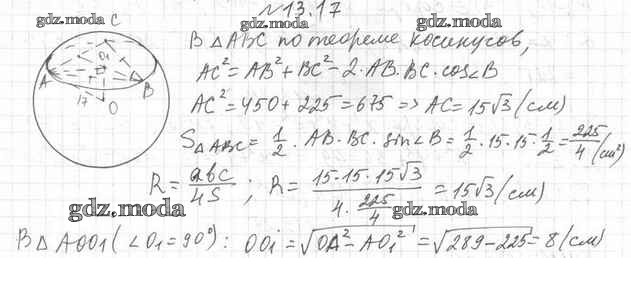 №13.17
gdz.moda gdz.moda
C
O1
A
B
17
O
В △ABC по теореме косинусов,
AC² = AB² + BC² - 2·AB·BC·cos∠B
gdz.moda
AC² = 450 + 225 = 675 => AC = 15√3 (см)
S△ABC = 1/2 · AB · BC · sin∠B = 1/2 · 15 · 15 · 1/2 = 225/4 (см²)
R = abc/4S ; R = 15·15·15√3 / 4·225/4 = 15√3 (см)
gdz.moda gdz.moda
В △AOO1 (∠O1 = 90°): OO1 = √OA² - AO1² = √289 - 225 = 8 (см)